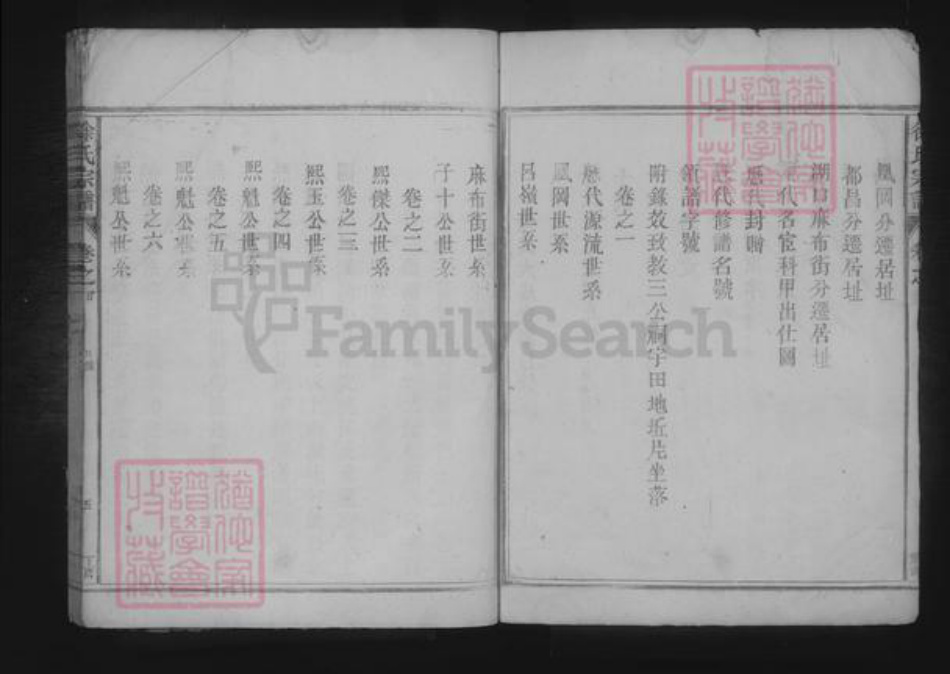 鳳岡分遷居址
都昌分遷居址
湖口麻布街分遷居址
歷代名宦科甲出仕圖
歷代封贈
歷代修譜名號
領譜字號
附錄效政教三公祠宇田地坵片坐落
卷之一
歷代源流世系
鳳岡世系
呂嶺世系
麻布街世系
子十公世系
卷之二
熙傑公世系
卷之三
熙玉公世系
卷之四
熙魁公世系
卷之五
熙魁公世系
卷之六
熙魁公世系
徐氏宗譜
卷之
FamilySearch